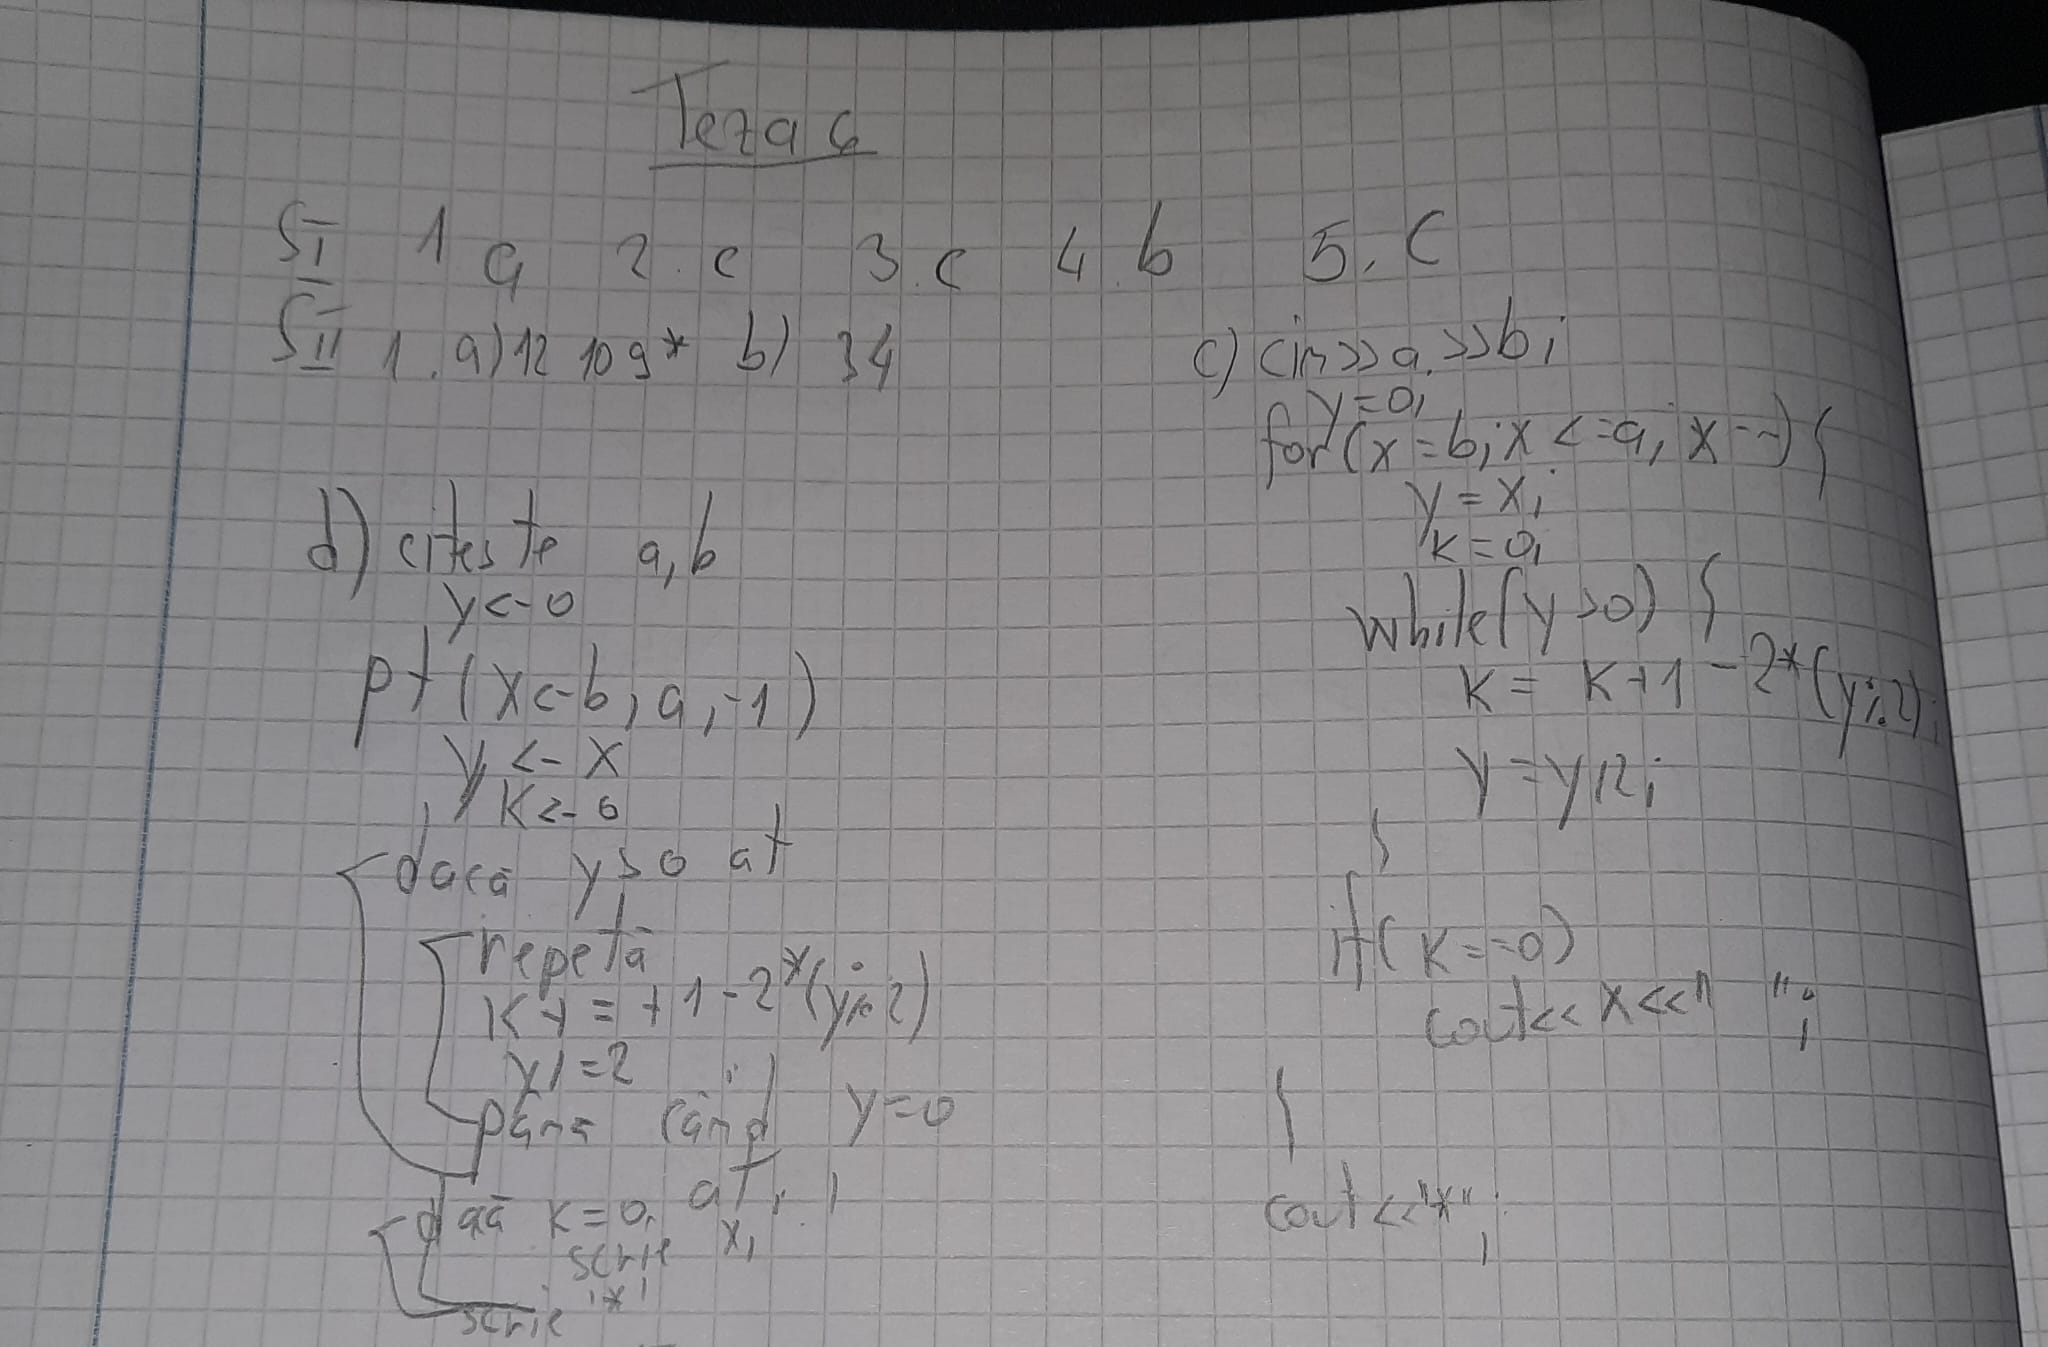 Teza 6
SI 1 a 2. c 3. c 4. b 5. C
SII 1. a) 12 10 9* b) 34
c) cin>>a>>b;
y=0;
for(x=b;x<=a;x--){
y=x;
k=0;
while(y>0) {
k= k+1-2*(y%2);
y=y/2;
}
if(k==0)
cout<<x<<" ";
}
cout<<"*";
d) citeste a,b
y<-0
pt(x<-b,a,-1)
y<-x
k<-0
dacă y>0 at
repetă
k+=+1-2*(y%2)
y/=2
până când y=0
dacă k=0, at
scrie x,' '
scrie '*'